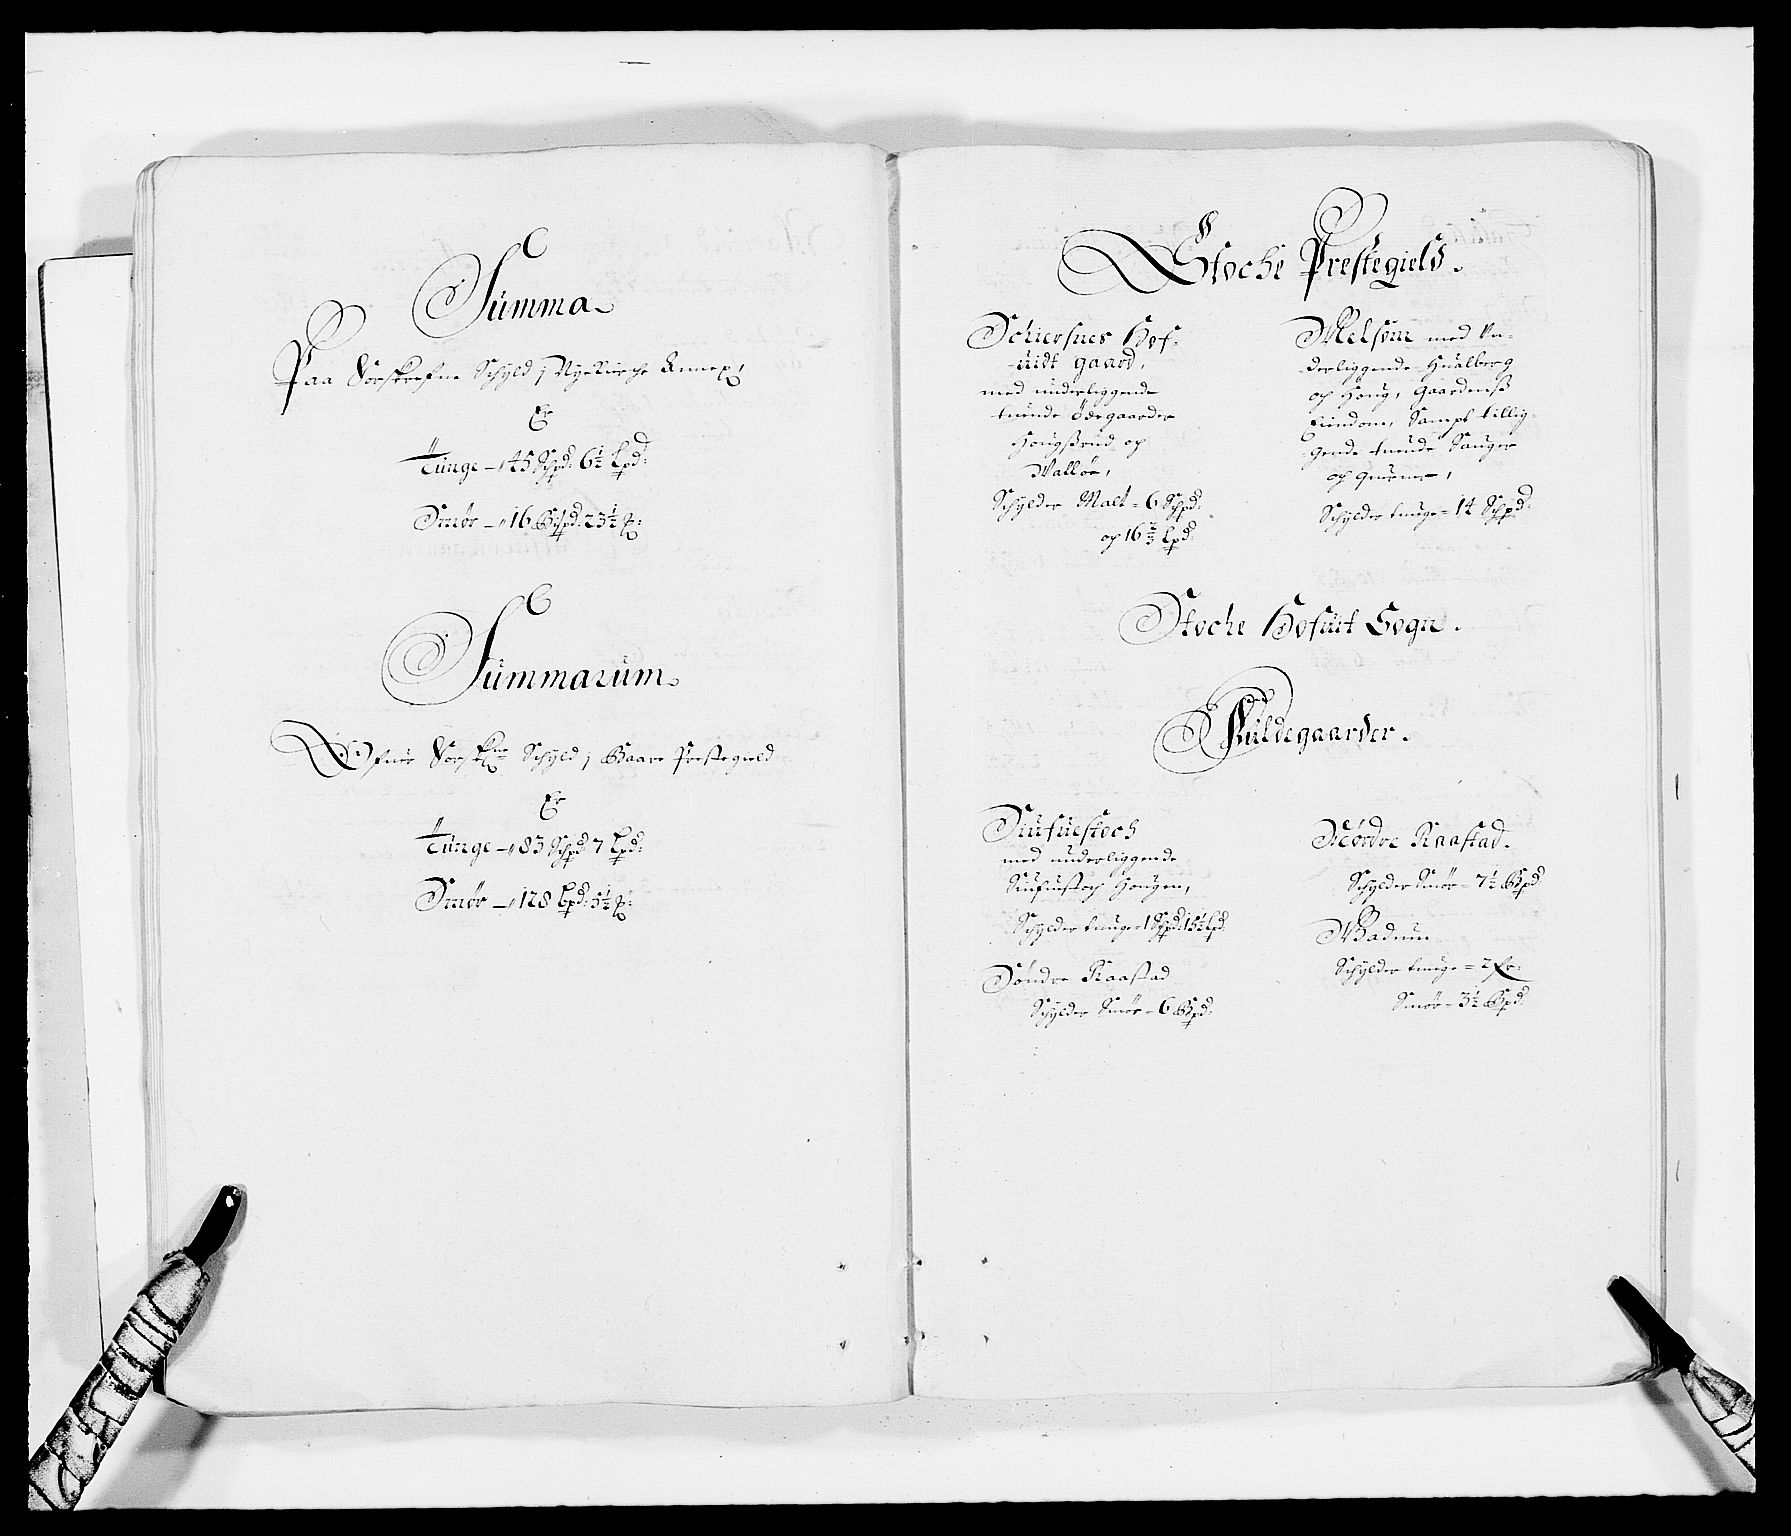 Summa
Paa Forskrefne Schyld j Nye Kirche Annex,
Er
Tünge — 45 Schpd: 6½ Lpd:
Smør — 16 Bszpd: 23½ ℔:
Summarum
Ofuer Forskne Schyld j Baare Prestegield
Er
Tünge — 83 Schpd: 7 Lpd:
Smør — 128 Bpd: 5½ ℔:
Stoche Prestegield.
Schiersnes Hof-
uidt gaard,
med underliggende
tuende Ödegaarder
Hougszrud og
Valløe,
Schylder Malt = 6 Schpd:
og 16⅔ Lpd:
Melsom med Un-
derliggende Hualberg
og Houg, Gaardensz
Eiendom, Sampt tillig-
gende tuende Sauger
og quern,
Schylder tunge = 14 Schpd:
Stoche Hofuit Sogn.
Fuldegaarder.
med underliggende
Hougen,
Schylder tunge = 1 Schpd: 15½ Lpd:
Söndre Raastad
Schylder Smör = 6 Bpd:
Nördre Raastad.
Schylder Smör = 7½ Bpd:
Schylder tunge = 2
Smör = 3½ Bpd: